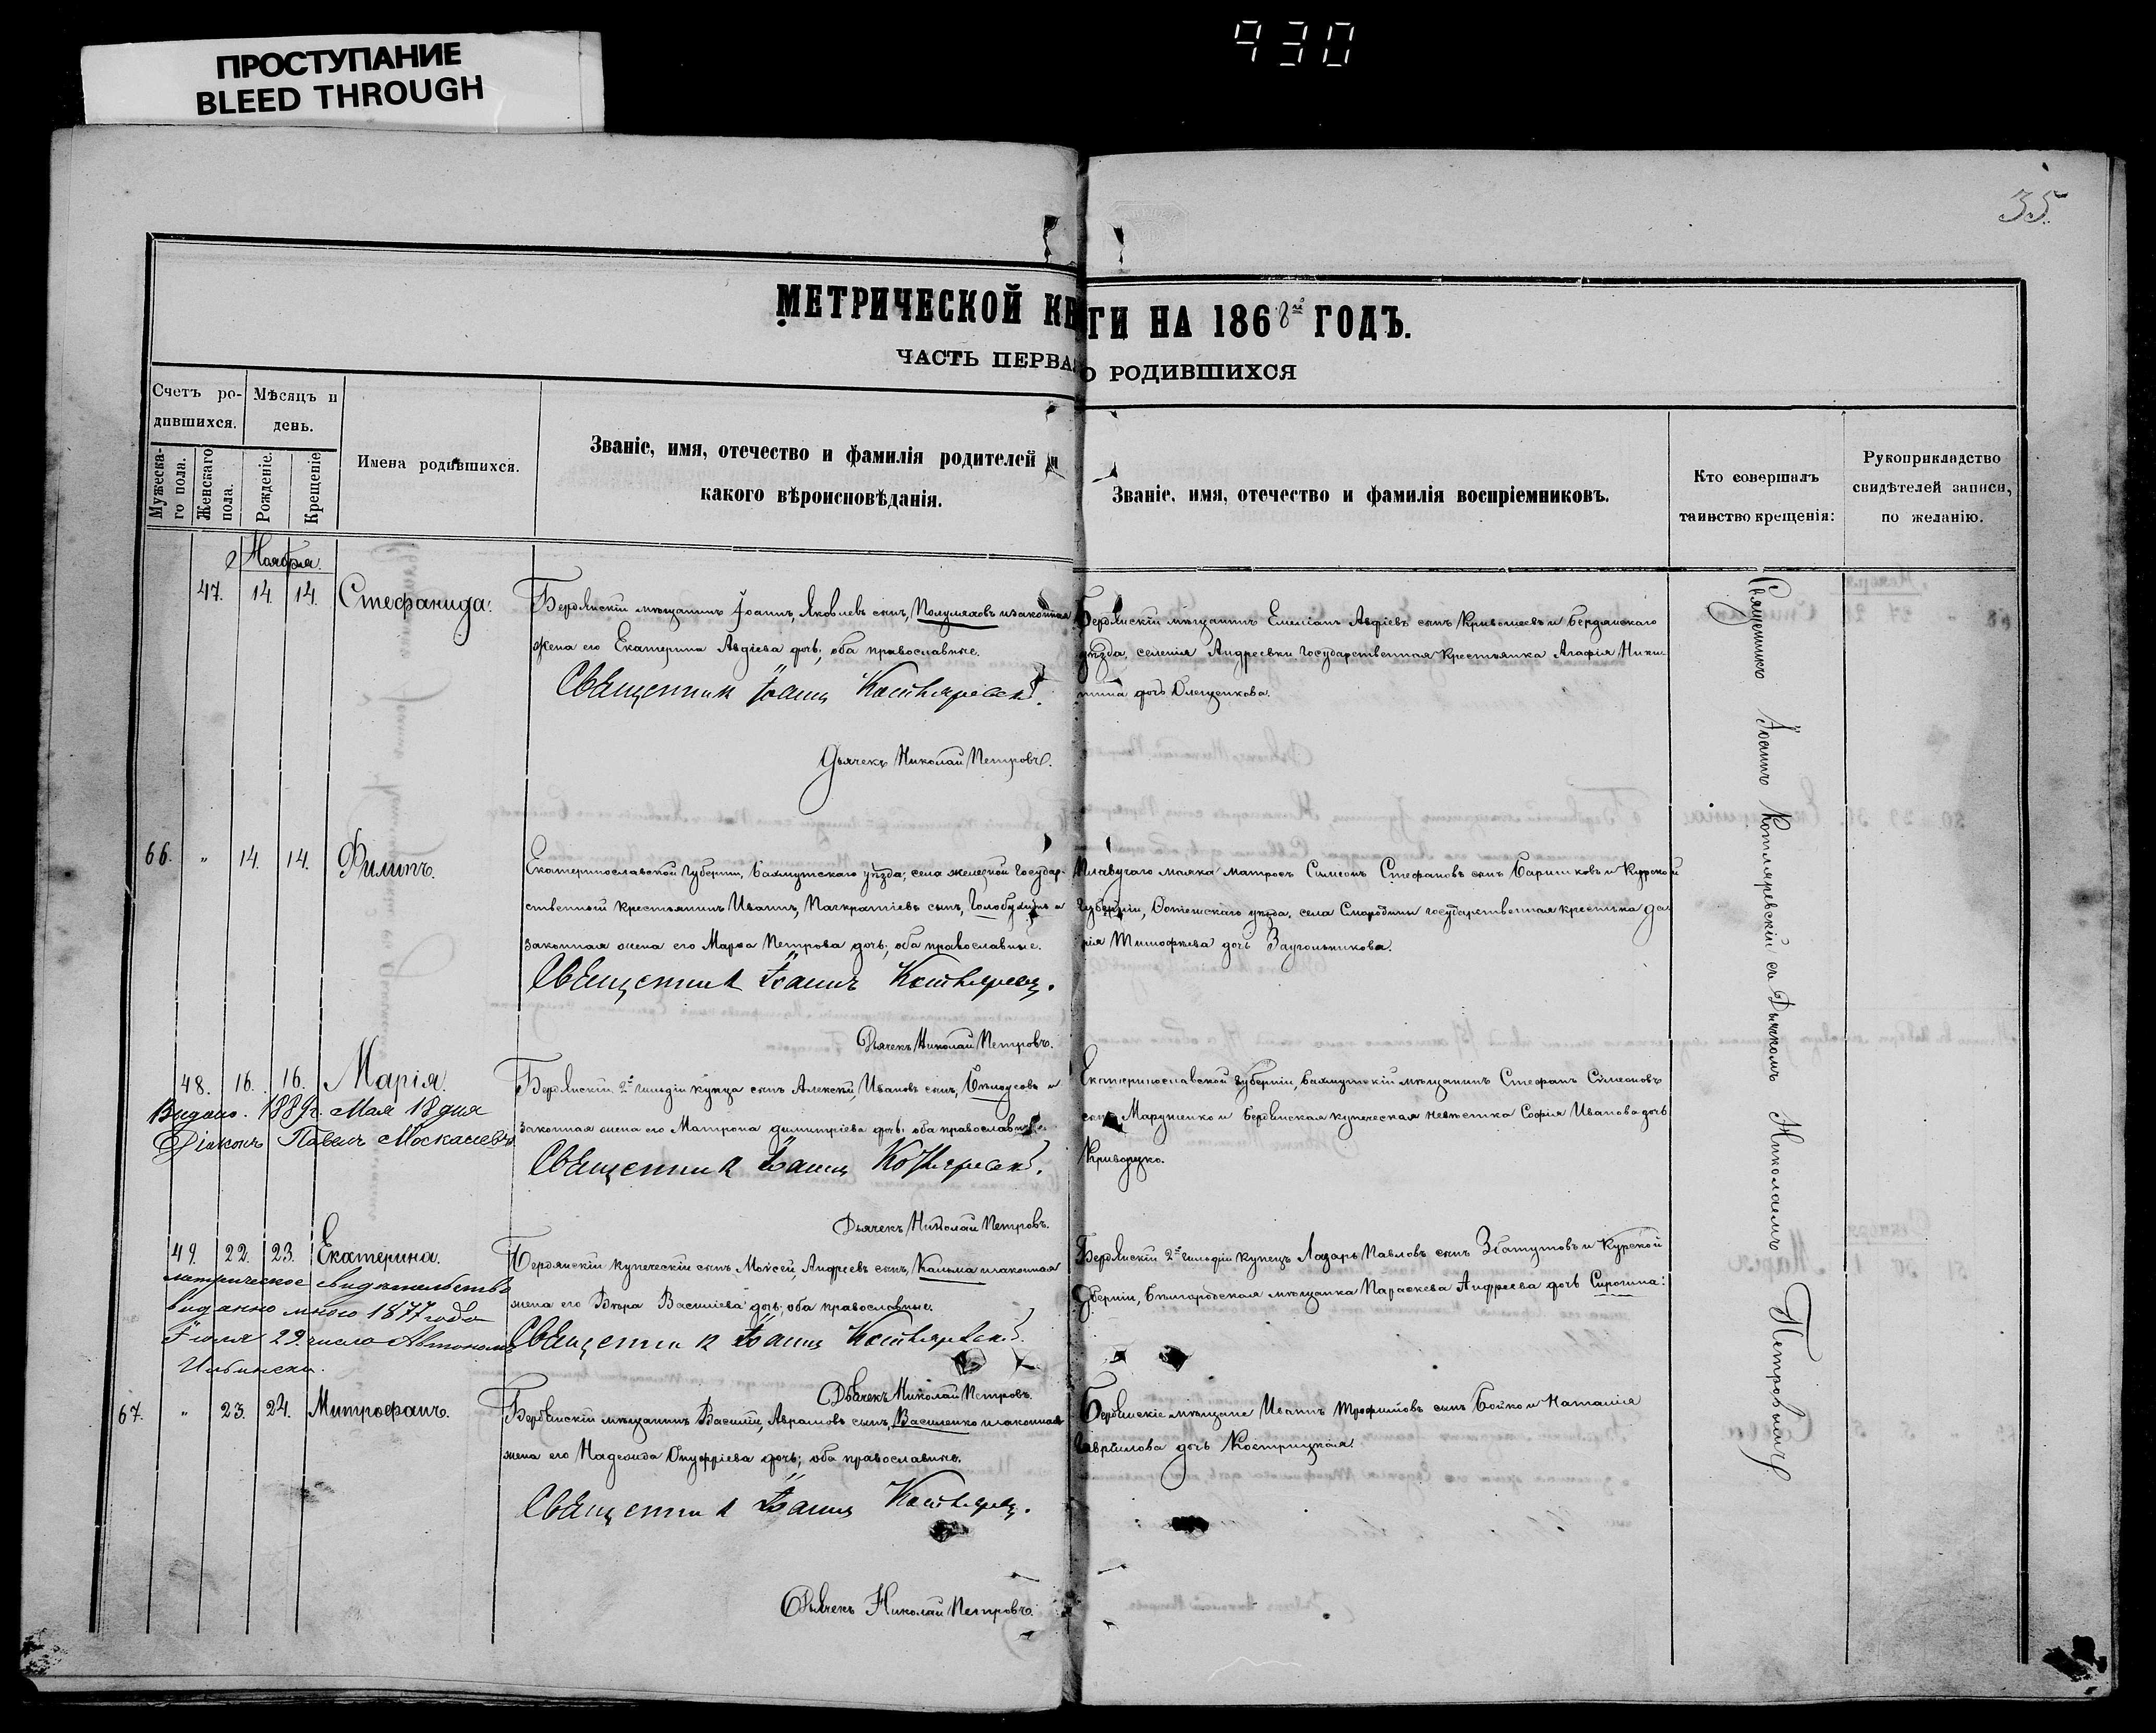 930
ПРОСТУПАНИЕ
BLEED THROUGH
35.
МЕТРИЧЕСКОЙ КНИГИ НА 1868й ГОДЪ.
ЧАСТЬ ПЕРВАЯ О РОДИВШИХСЯ
Счетъ ро-
дившихся.
Мужеска-
го пола.
Женскаго
пола.
Мѣсяцъ и
день.
Рожденіе.
Крещеніе
Имена родившихся.
Званіе, имя, отечество и фамилія родителей и
какого вѣроисповѣданія.
Званіе, имя, отечество и фамилія воспріемниковъ.
Кто совершалъ
таинство крещенія:
Рукоприкладство
свидѣтелей записи,
по желанію.
Ноября.
47. 14. 14. Стефанида.
Бердянскій мѣщанинъ Іоаннъ, Яковлевъ сынъ, Полуляховъ и законная
жена его Екатерина Авдіева дочь; оба православные.
Священник Іоанн Котляревскі.
Дьячекъ Николай Петровъ.
Бердянскій мѣщанинъ Емеліанъ Авдіевъ сынъ Кривошеевъ и бердянскаго
уѣзда, селенія Андреевки Государственная Крестьянка Агафія Ники-
тина дочь Олещенкова.
66. " 14. 14. Филипъ.
Екатеринославской Губерніи, Бахмутскаго уѣзда; села железной Государ-
ственный крестьянинъ Иванъ, Панкратіевъ сынъ, и
законная жена его Марѳа Петрова дочь; оба православные.
Священник Іоаннъ Котляревс.
Дьячекъ Николай Петровъ.
Плавучаго маяка матросъ Симеонъ Стефановъ сынъ Баришковъ и Курской
Губерніи, уѣзда, села Смородины государственная крестьянка Да-
рія Тимофѣева дочь Заугольникова.
48. 16. 16. Марія.
Видано. 1889г. Мая 18 дня
Діаконъ Павелъ Москалевъ
Бердянскій 2й гильдіи купца сынъ Алексѣй, Ивановъ сынъ, Бѣлоусовъ и
законная жена его Матрона димитріева дочь; оба православные.
Священник Іоанн Котляревскі.
Дьячекъ Николай Петровъ.
Екатеринославской губерніи, бахмутскій мѣщанинъ Стефанъ Симеоновъ
сынъ Марущенко и Бердянская купеческая невѣстка Софія Иванова дочь
Криворучко.
49. 22. 23. Екатерина.
метрическое свидѣтельство
виданно мною 1877 года
Іюля 29 числа Автономъ
Ильински.
Бердянскій купеческій сынъ Моисей, Андреевъ сынъ, Кальма и законная
жена его Вѣра Василіева дочь; оба православные.
Священник Іоанн Котляревскі.
Дьячекъ Николай Петровъ.
Бердянскій 2й гильдіи купецъ Лазарь Павловъ сынъ и Курской
Губерніи, Бѣлгородская мѣщанка Параскева Андреева дочь Сиротина:
67. " 23. 24. Митрофанъ.
Бердянскій мѣщанинъ Василій, Авраамовъ сынъ, Василенко и законная
жена его Надежда Онуфріева дочь; оба православные.
Священник Іоанн Котляревс.
Дьячекъ Николай Петровъ.
Бердянскіе мѣщане Иванъ Трофимовъ сынъ Бойко и Наталія
Гаврилова дочь Кострицкая.
Священникъ Іоаннъ Котляревскій съ Дьячкомъ Николаемъ Петровымъ.